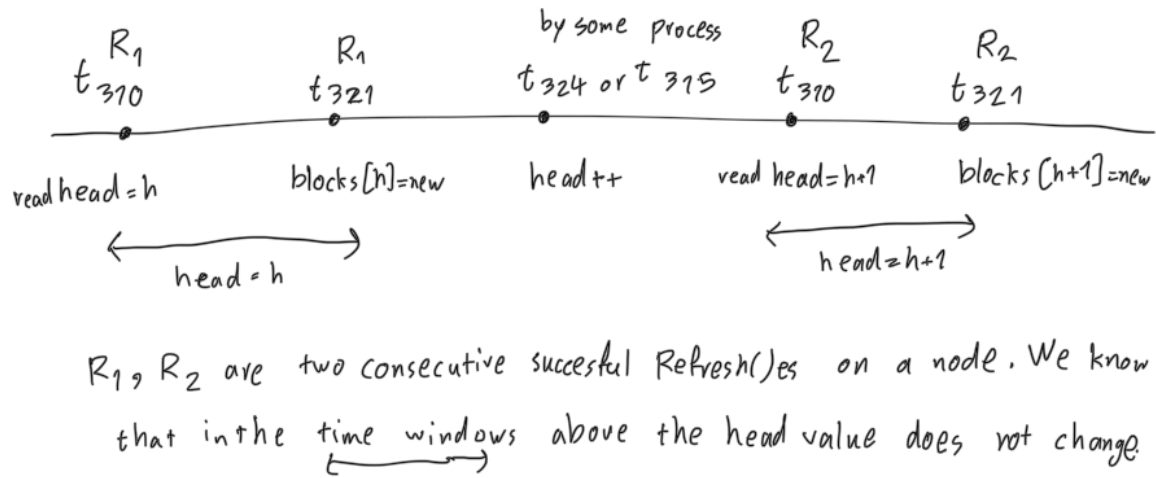 by some process
R₁ R₁ t₃₂₄ or t₃₁₅ R₂ R₂
t₃₁₀ t₃₂₁ t₃₁₀ t₃₂₁
read head = h blocks[h]=new head++ read head=h+1 blocks[h+1]=new
head = h head=h+1
R₁, R₂ are two consecutive succesful Refresh()es on a node. We know
that in the time windows above the head value does not change.